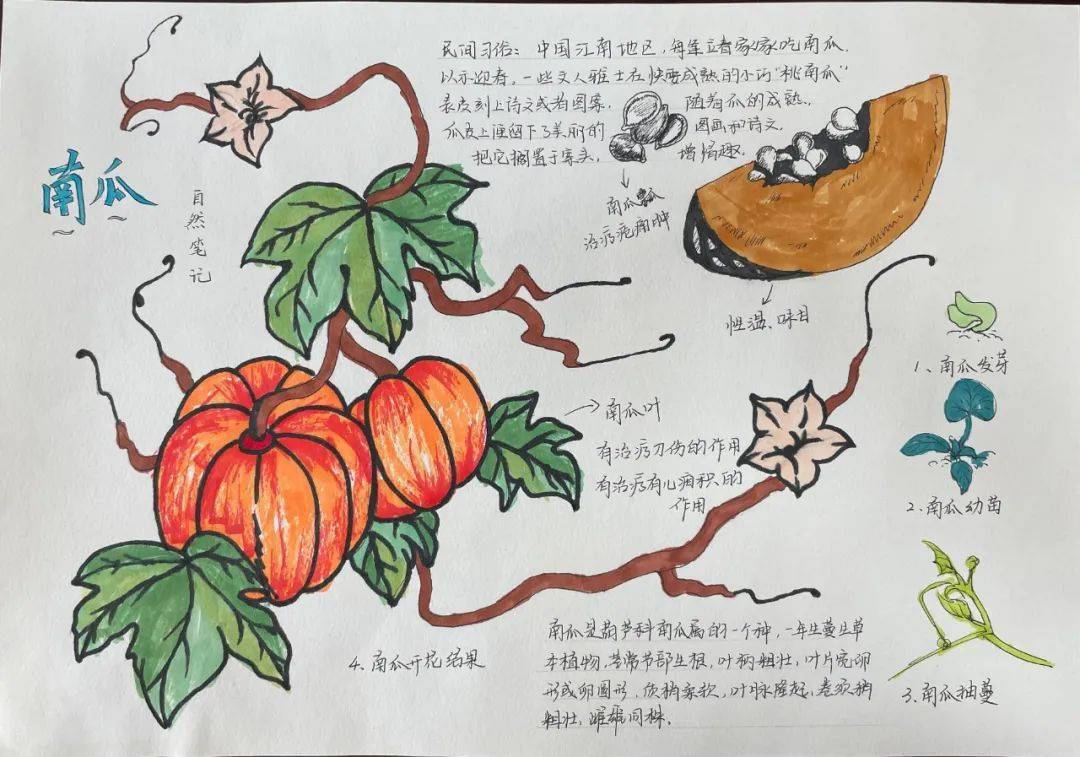 南瓜
自然笔记
民间习俗：中国江南地区，每逢立春家家吃南瓜，
以示迎春。一些文人雅士在快要成熟的小巧“桃南瓜”
表皮刻上诗文或者图案，随着瓜的成熟，
瓜皮上便留下了美丽的图画和诗文，
把它搁置于案头，增情趣。
南瓜瓤
治疗疮痈肿
性温、味甘
1、南瓜发芽
2、南瓜幼苗
3、南瓜抽蔓
南瓜叶
有治疗刀伤的作用
有治疗有儿疳积的
作用
4、南瓜开花结果
南瓜是葫芦科南瓜属的一个种，一年生蔓生草
本植物，茎常节部生根，叶柄粗壮，叶片宽卵
形或卵圆形，质稍柔软，叶脉隆起，卷须稍
粗壮，雌雄同株。